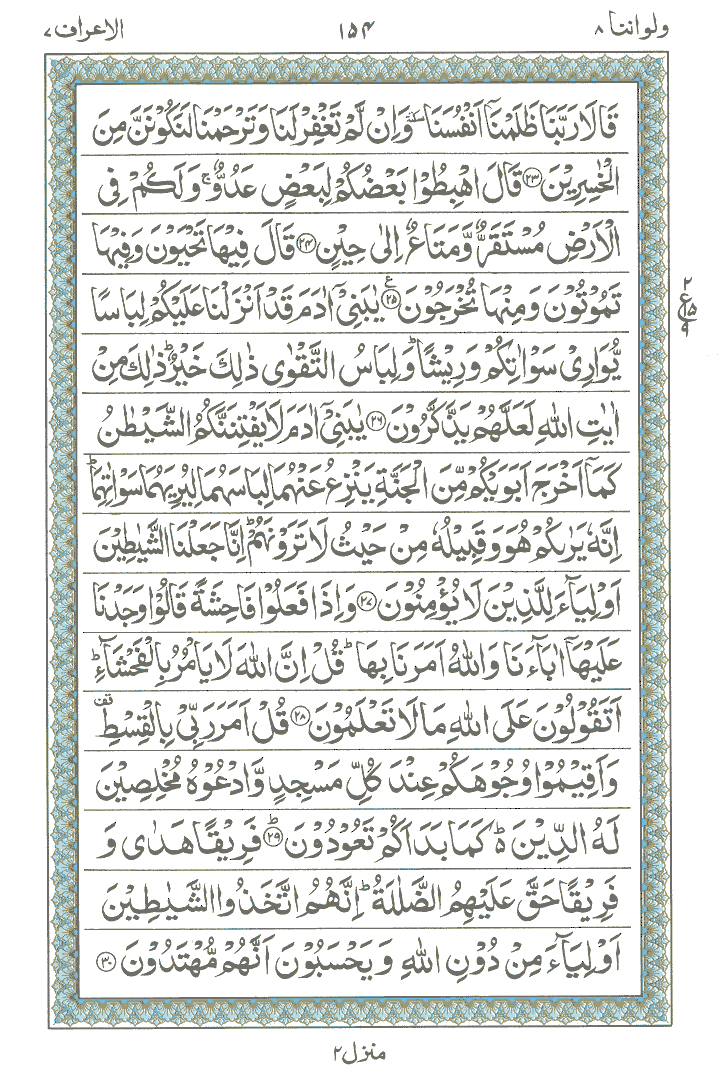 ولواننا ٨ ١٥٤ الاعراف ٧
قَالَا رَبَّنَا ظَلَمْنَآ اَنْفُسَنَا ٚ وَاِنْ لَّمْ تَغْفِرْ لَنَا وَتَرْحَمْنَا لَنَكُوْنَنَّ مِنَ
الْخٰسِرِيْنَ ﴿٢٣﴾ قَالَ اهْبِطُوْا بَعْضُكُمْ لِبَعْضٍ عَدُوٌّ ۚ وَلَكُمْ فِى
الْاَرْضِ مُسْتَقَرٌّ وَّمَتَاعٌ اِلٰى حِيْنٍ ﴿٢٤﴾ قَالَ فِيْهَا تَحْيَوْنَ وَفِيْهَا
تَمُوْتُوْنَ وَمِنْهَا تُخْرَجُوْنَ ﴿٢٥﴾ ع يٰبَنِىْٓ اٰدَمَ قَدْ اَنْزَلْنَا عَلَيْكُمْ لِبَاسًا
٢ ع ١٥ ٩
يُّوَارِىْ سَوْاٰتِكُمْ وَرِيْشًا ؕ وَلِبَاسُ التَّقْوٰى ذٰلِكَ خَيْرٌ ؕ ذٰلِكَ مِنْ
اٰيٰتِ اللّٰهِ لَعَلَّهُمْ يَذَّكَّرُوْنَ ﴿٢٦﴾ يٰبَنِىْٓ اٰدَمَ لَا يَفْتِنَنَّكُمُ الشَّيْطٰنُ
كَمَآ اَخْرَجَ اَبَوَيْكُمْ مِّنَ الْجَنَّةِ يَنْزِعُ عَنْهُمَا لِبَاسَهُمَا لِيُرِيَهُمَا سَوْاٰتِهِمَا ؕ
اِنَّهٗ يَرٰىكُمْ هُوَ وَقَبِيْلُهٗ مِنْ حَيْثُ لَا تَرَوْنَهُمْ ؕ اِنَّا جَعَلْنَا الشَّيٰطِيْنَ
اَوْلِيَآءَ لِلَّذِيْنَ لَا يُؤْمِنُوْنَ ﴿٢٧﴾ وَاِذَا فَعَلُوْا فَاحِشَةً قَالُوْا وَجَدْنَا
عَلَيْهَآ اٰبَآءَنَا وَاللّٰهُ اَمَرَنَا بِهَا ؕ قُلْ اِنَّ اللّٰهَ لَا يَاْمُرُ بِالْفَحْشَآءِ ؕ
اَتَقُوْلُوْنَ عَلَى اللّٰهِ مَا لَا تَعْلَمُوْنَ ﴿٢٨﴾ قُلْ اَمَرَ رَبِّىْ بِالْقِسْطِ قف
وَاَقِيْمُوْا وُجُوْهَكُمْ عِنْدَ كُلِّ مَسْجِدٍ وَّادْعُوْهُ مُخْلِصِيْنَ
لَهُ الدِّيْنَ ۬ؕ كَمَا بَدَاَكُمْ تَعُوْدُوْنَ ﴿٢٩﴾ؕ فَرِيْقًا هَدٰى وَ
فَرِيْقًا حَقَّ عَلَيْهِمُ الضَّلٰلَةُ ؕ اِنَّهُمُ اتَّخَذُوا الشَّيٰطِيْنَ
اَوْلِيَآءَ مِنْ دُوْنِ اللّٰهِ وَيَحْسَبُوْنَ اَنَّهُمْ مُّهْتَدُوْنَ ﴿٣٠﴾
منزل ٢